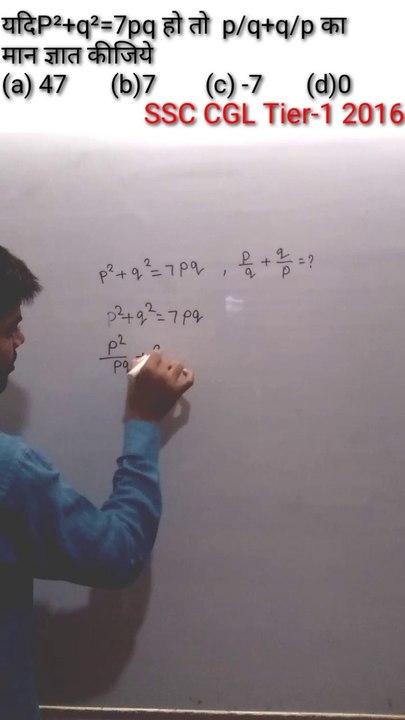 यदिP²+q²=7pq हो तो p/q+q/p का
मान ज्ञात कीजिये
(a) 47 (b)7 (c) -7 (d)0
SSC CGL Tier-1 2016
p²+q²=7pq , p/q + q/p =?
p²+q²=7pq
p²/pq